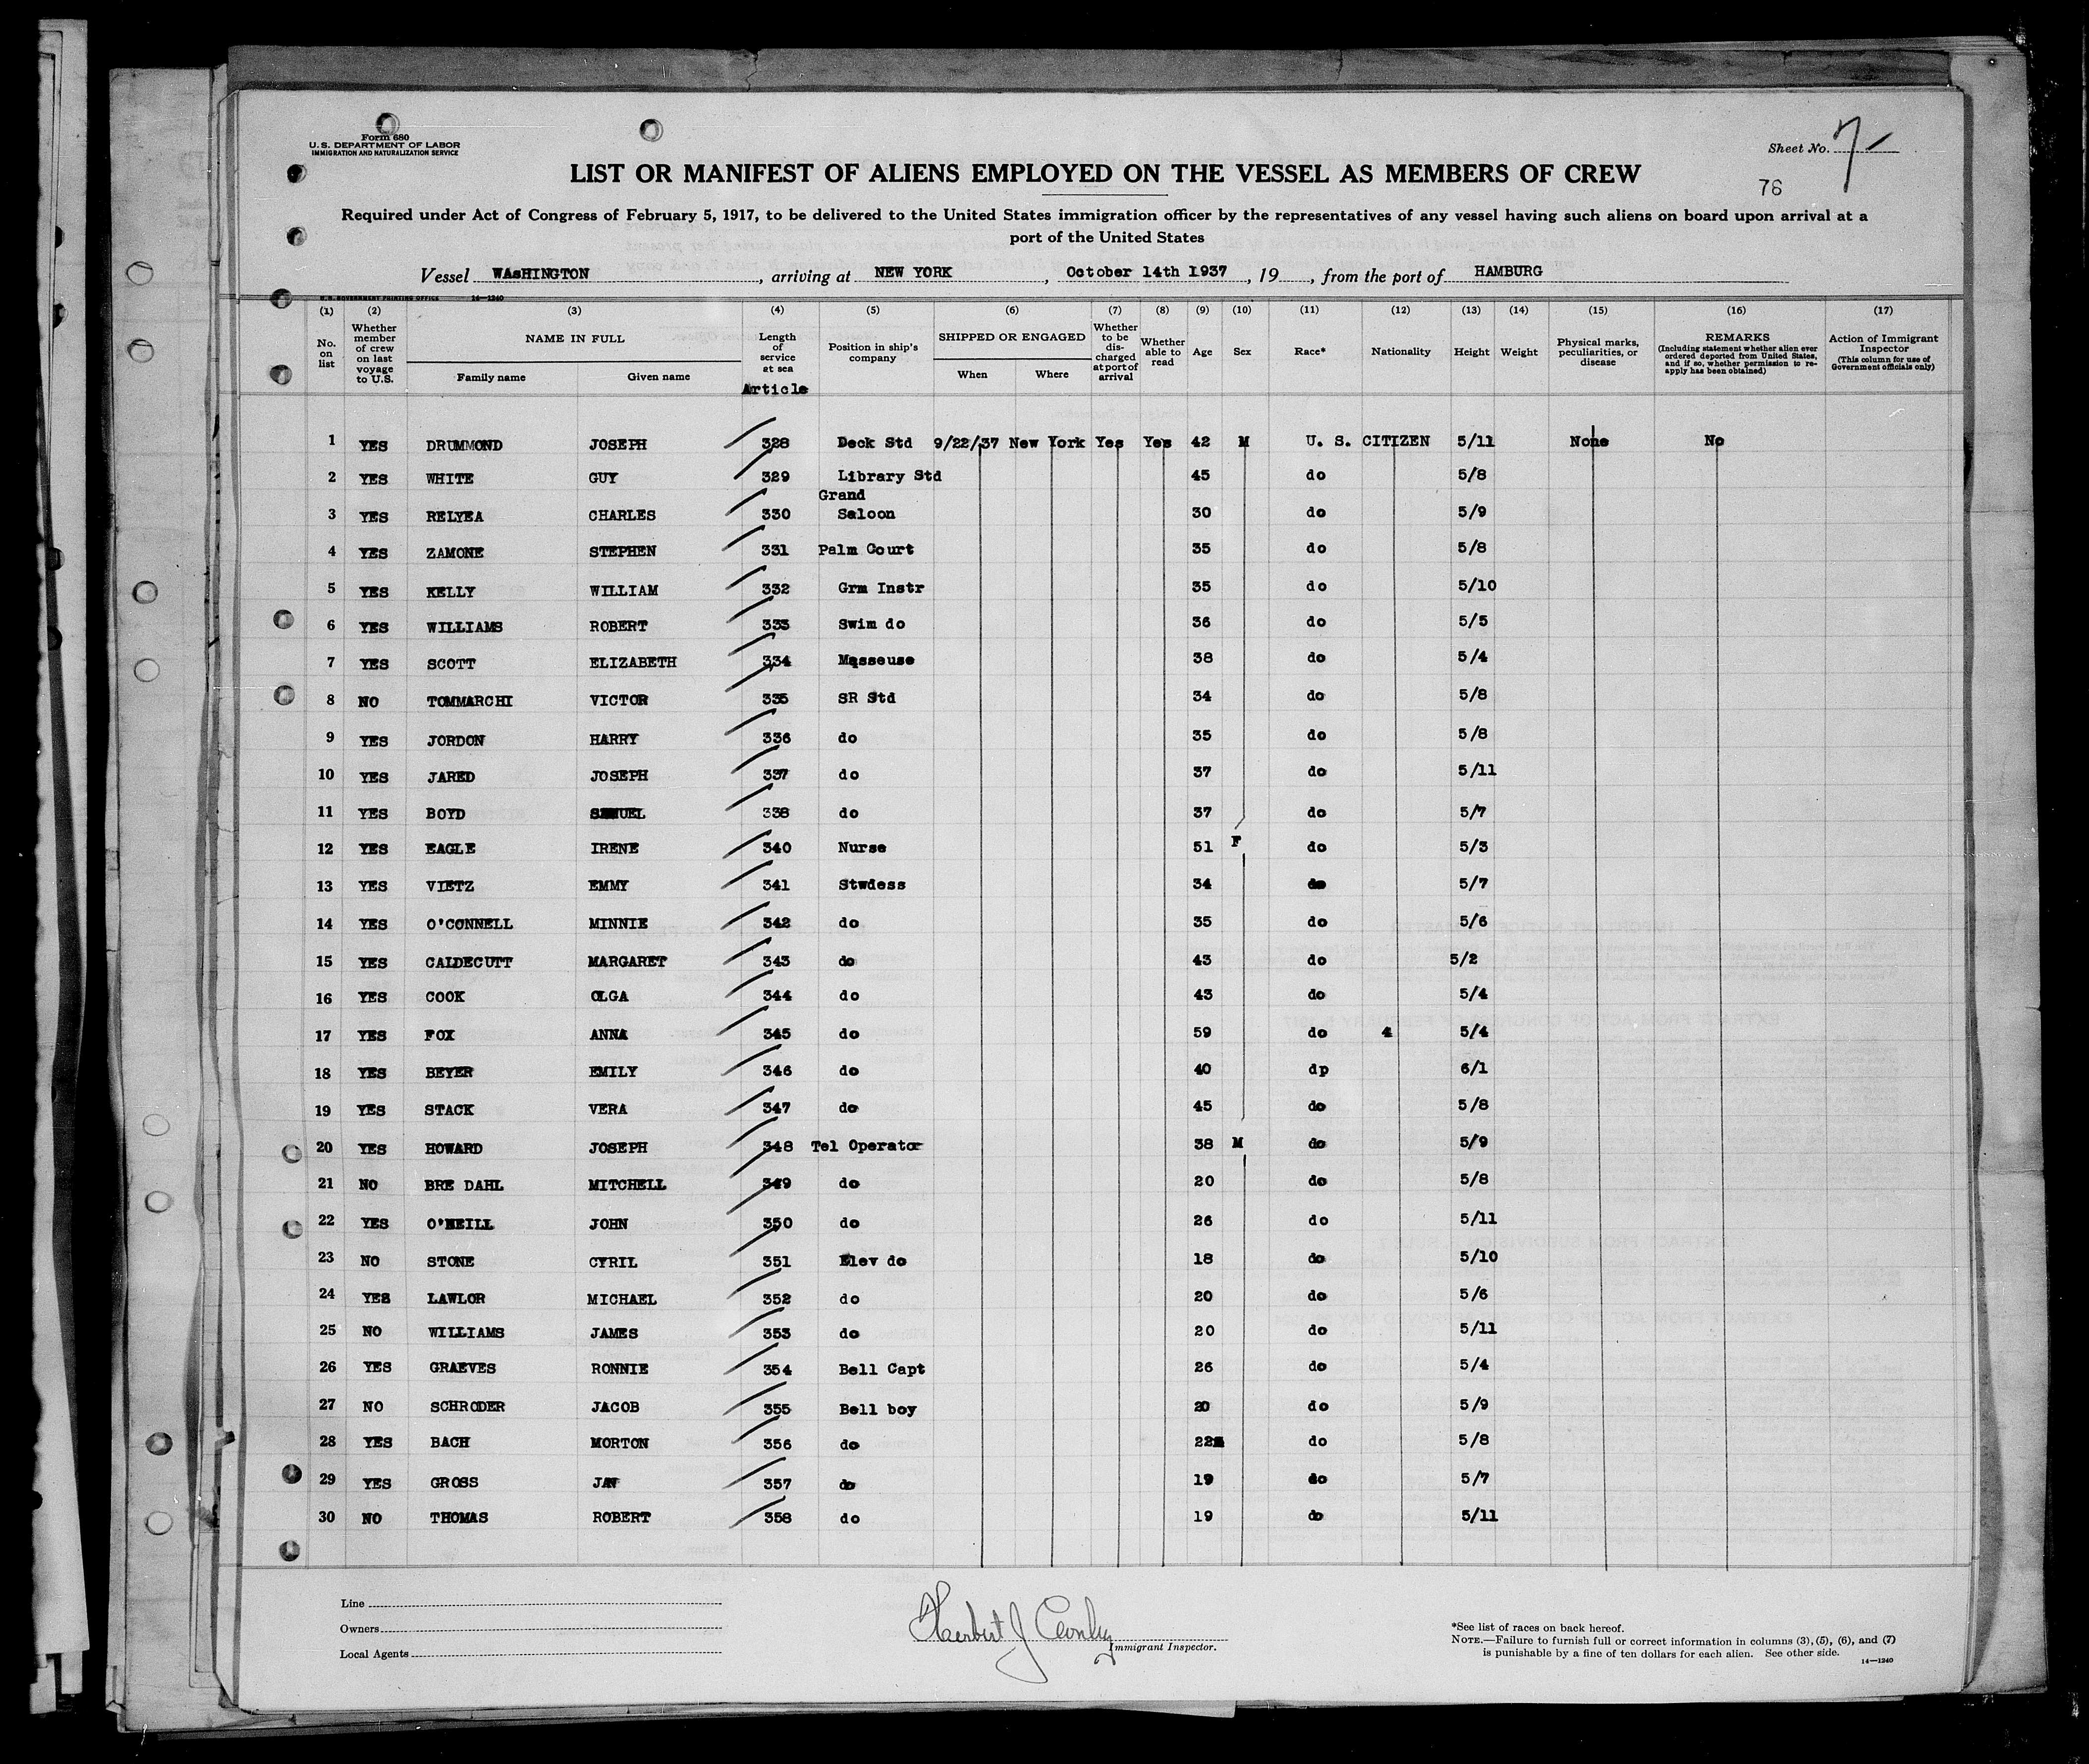 Form 680
U. S. DEPARTMENT OF LABOR
IMMIGRATION AND NATURALIZATION SERVICE
Sheet No. 7
76
LIST OR MANIFEST OF ALIENS EMPLOYED ON THE VESSEL AS MEMBERS OF CREW
Required under Act of Congress of February 5, 1917, to be delivered to the United States immigration officer by the representatives of any vessel having such aliens on board upon arrival at a
port of the United States
Vessel WAsHINGTON, arriving at NEW YORK, October 14th 1937, 19, from the port of HAMBURG
U. S. GOVERNMENT PRINTING OFFICE 14—1240
(1) (2) (3) (4) (5) (6) (7) (8) (9) (10) (11) (12) (13) (14) (15) (16) (17)
No. on list
Whether member of crew on last voyage to U.S.
NAME IN FULL
Family name Given name
Length of service at sea
Article
Position in ship's company
SHIPPED OR ENGAGED
When Where
Whether to be discharged at port of arrival
Whether able to read
Age
Sex
Race*
Nationality
Height
Weight
Physical marks, peculiarities, or disease
REMARKS
(Including statement whether alien ever ordered deported from United States, and if so, whether permission to reapply has been obtained)
Action of Immigrant Inspector
(This column for use of Government officials only)
1 YES DRUMMOND JOSEPH 328 Deck Std 9/22/37 New York Yes Yes 42 M U. S. CITIZEN 5/11 None No
2 YES WHITE GUY 329 Library Std 45 do 5/8
3 YES RELYEA CHARLES 330 Grand Saloon 30 do 5/9
4 YES ZAMONE STEPHEN 331 Palm Court 35 do 5/8
5 YES KELLY WILLIAM 332 Grm Instr 35 do 5/10
6 YES WILLIAMS ROBERT 333 Swim do 36 do 5/5
7 YES SCOTT ELIZABETH 334 Masseuse 38 do 5/4
8 NO TOMMARCHI VICTOR 335 SR Std 34 do 5/8
9 YES JORDON HARRY 336 do 35 do 5/8
10 YES JARED JOSEPH 337 do 37 do 5/11
11 YES BOYD SAMUEL 338 do 37 do 5/7
12 YES EAGLE IRENE 340 Nurse 51 F do 5/3
13 YES VIETZ EMMY 341 Stwdess 34 do 5/7
14 YES O'CONNELL MINNIE 342 do 35 do 5/6
15 YES CALDECUTT MARGARET 343 do 43 do 5/2
16 YES COOK OLGA 344 do 43 do 5/4
17 YES FOX ANNA 345 do 59 do 4 5/4
18 YES BEYER EMILY 346 do 40 dp 6/1
19 YES STACK VERA 347 do 45 do 5/8
20 YES HOWARD JOSEPH 348 Tel Operator 38 M do 5/9
21 NO BRE DAHL MITCHELL 349 do 20 do 5/8
22 YES O'NEILL JOHN 350 do 26 do 5/11
23 NO STONE CYRIL 351 Elev do 18 do 5/10
24 YES LAWLOR MICHAEL 352 do 20 do 5/6
25 NO WILLIAMS JAMES 353 do 20 do 5/11
26 YES GRAEVES RONNIE 354 Bell Capt 26 do 5/4
27 NO SCHRODER JACOB 355 Bell boy 20 do 5/9
28 YES BACH MORTON 356 do 22 do 5/8
29 YES GROSS JAN 357 do 19 do 5/7
30 NO THOMAS ROBERT 358 do 19 do 5/11
Line
Owners
Local Agents
Herbert J
Immigrant Inspector.
*See list of races on back hereof.
NOTE.—Failure to furnish full or correct information in columns (3), (5), (6), and (7)
is punishable by a fine of ten dollars for each alien. See other side.
14—1240